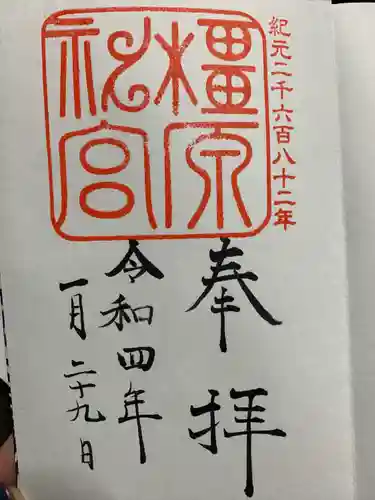 紀元二千六百八十二年
橿原
神宮
奉拝
令和四年
一月二十九日